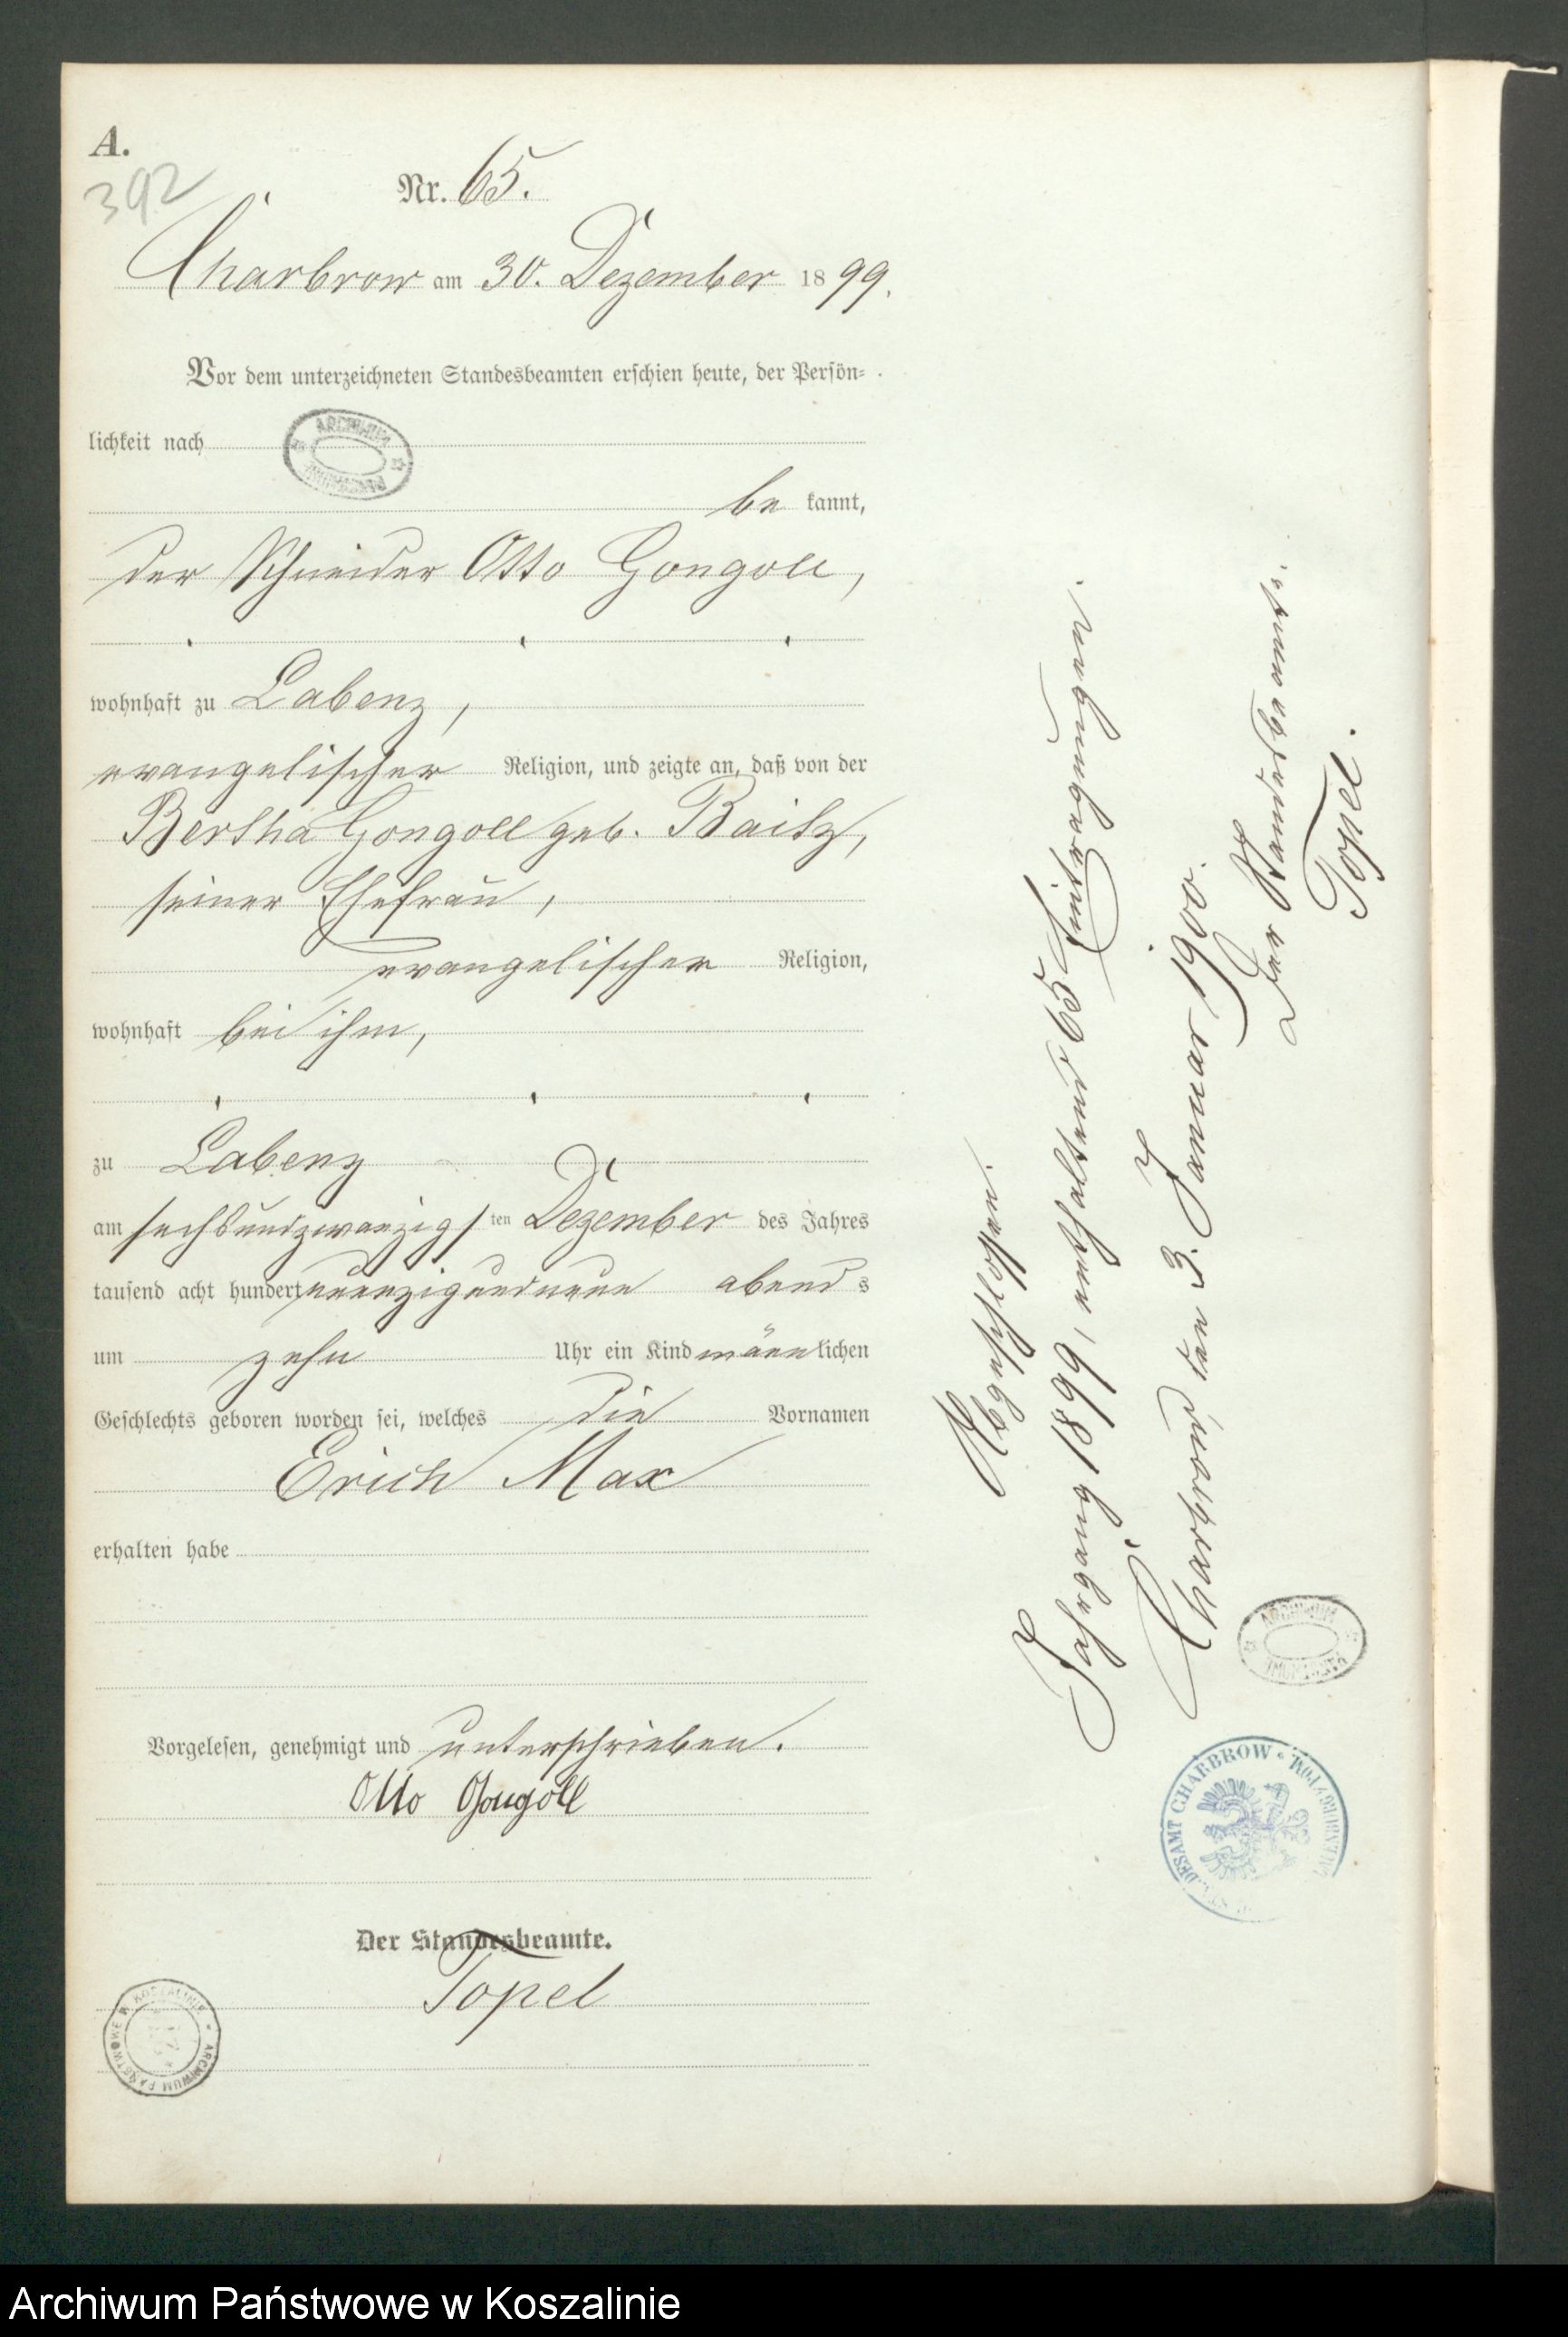 A.
392
Nr. 65.
Charbrow am 30. Dezember 1899.
Vor dem unterzeichneten Standesbeamten erschien heute, der Persön-
lichkeit nach
ARCHIWUM
be kannt,
der Schneider Otto Gongoll,
wohnhaft zu Labenz,
evangelischer Religion, und zeigte an, daß von der
Bertha Gongoll geb. Baitz,
seiner Ehefrau,
evangelischer Religion,
wohnhaft bei ihm,
zu Labenz
am sechsundzwanzigsten Dezember des Jahres
tausend acht hundert neunzigundneun abends
um zehn Uhr ein Kind männlichen
Geschlechts geboren worden sei, welches die Vornamen
Erich Max
erhalten habe
Vorgelesen, genehmigt und unterschrieben.
Otto Gongoll
Der Standesbeamte.
Topel
ARCHIWUM PAŃSTWOWE W KOSZALINIE
Abgeschlossen.
Jahrgang 1899, enthaltend 65 Eintragungen.
Charbrow, den 3. Januar 1900.
Der Standesbeamte.
Topel.
ARCHIWUM
STANDESAMT CHARBROW
Archiwum Państwowe w Koszalinie